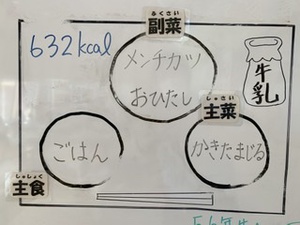 ふくさい
副菜
632kcal
メンチカツ
おひたし
牛乳
しゅさい
主菜
ごはん
かきたまじる
しゅしょく
主食